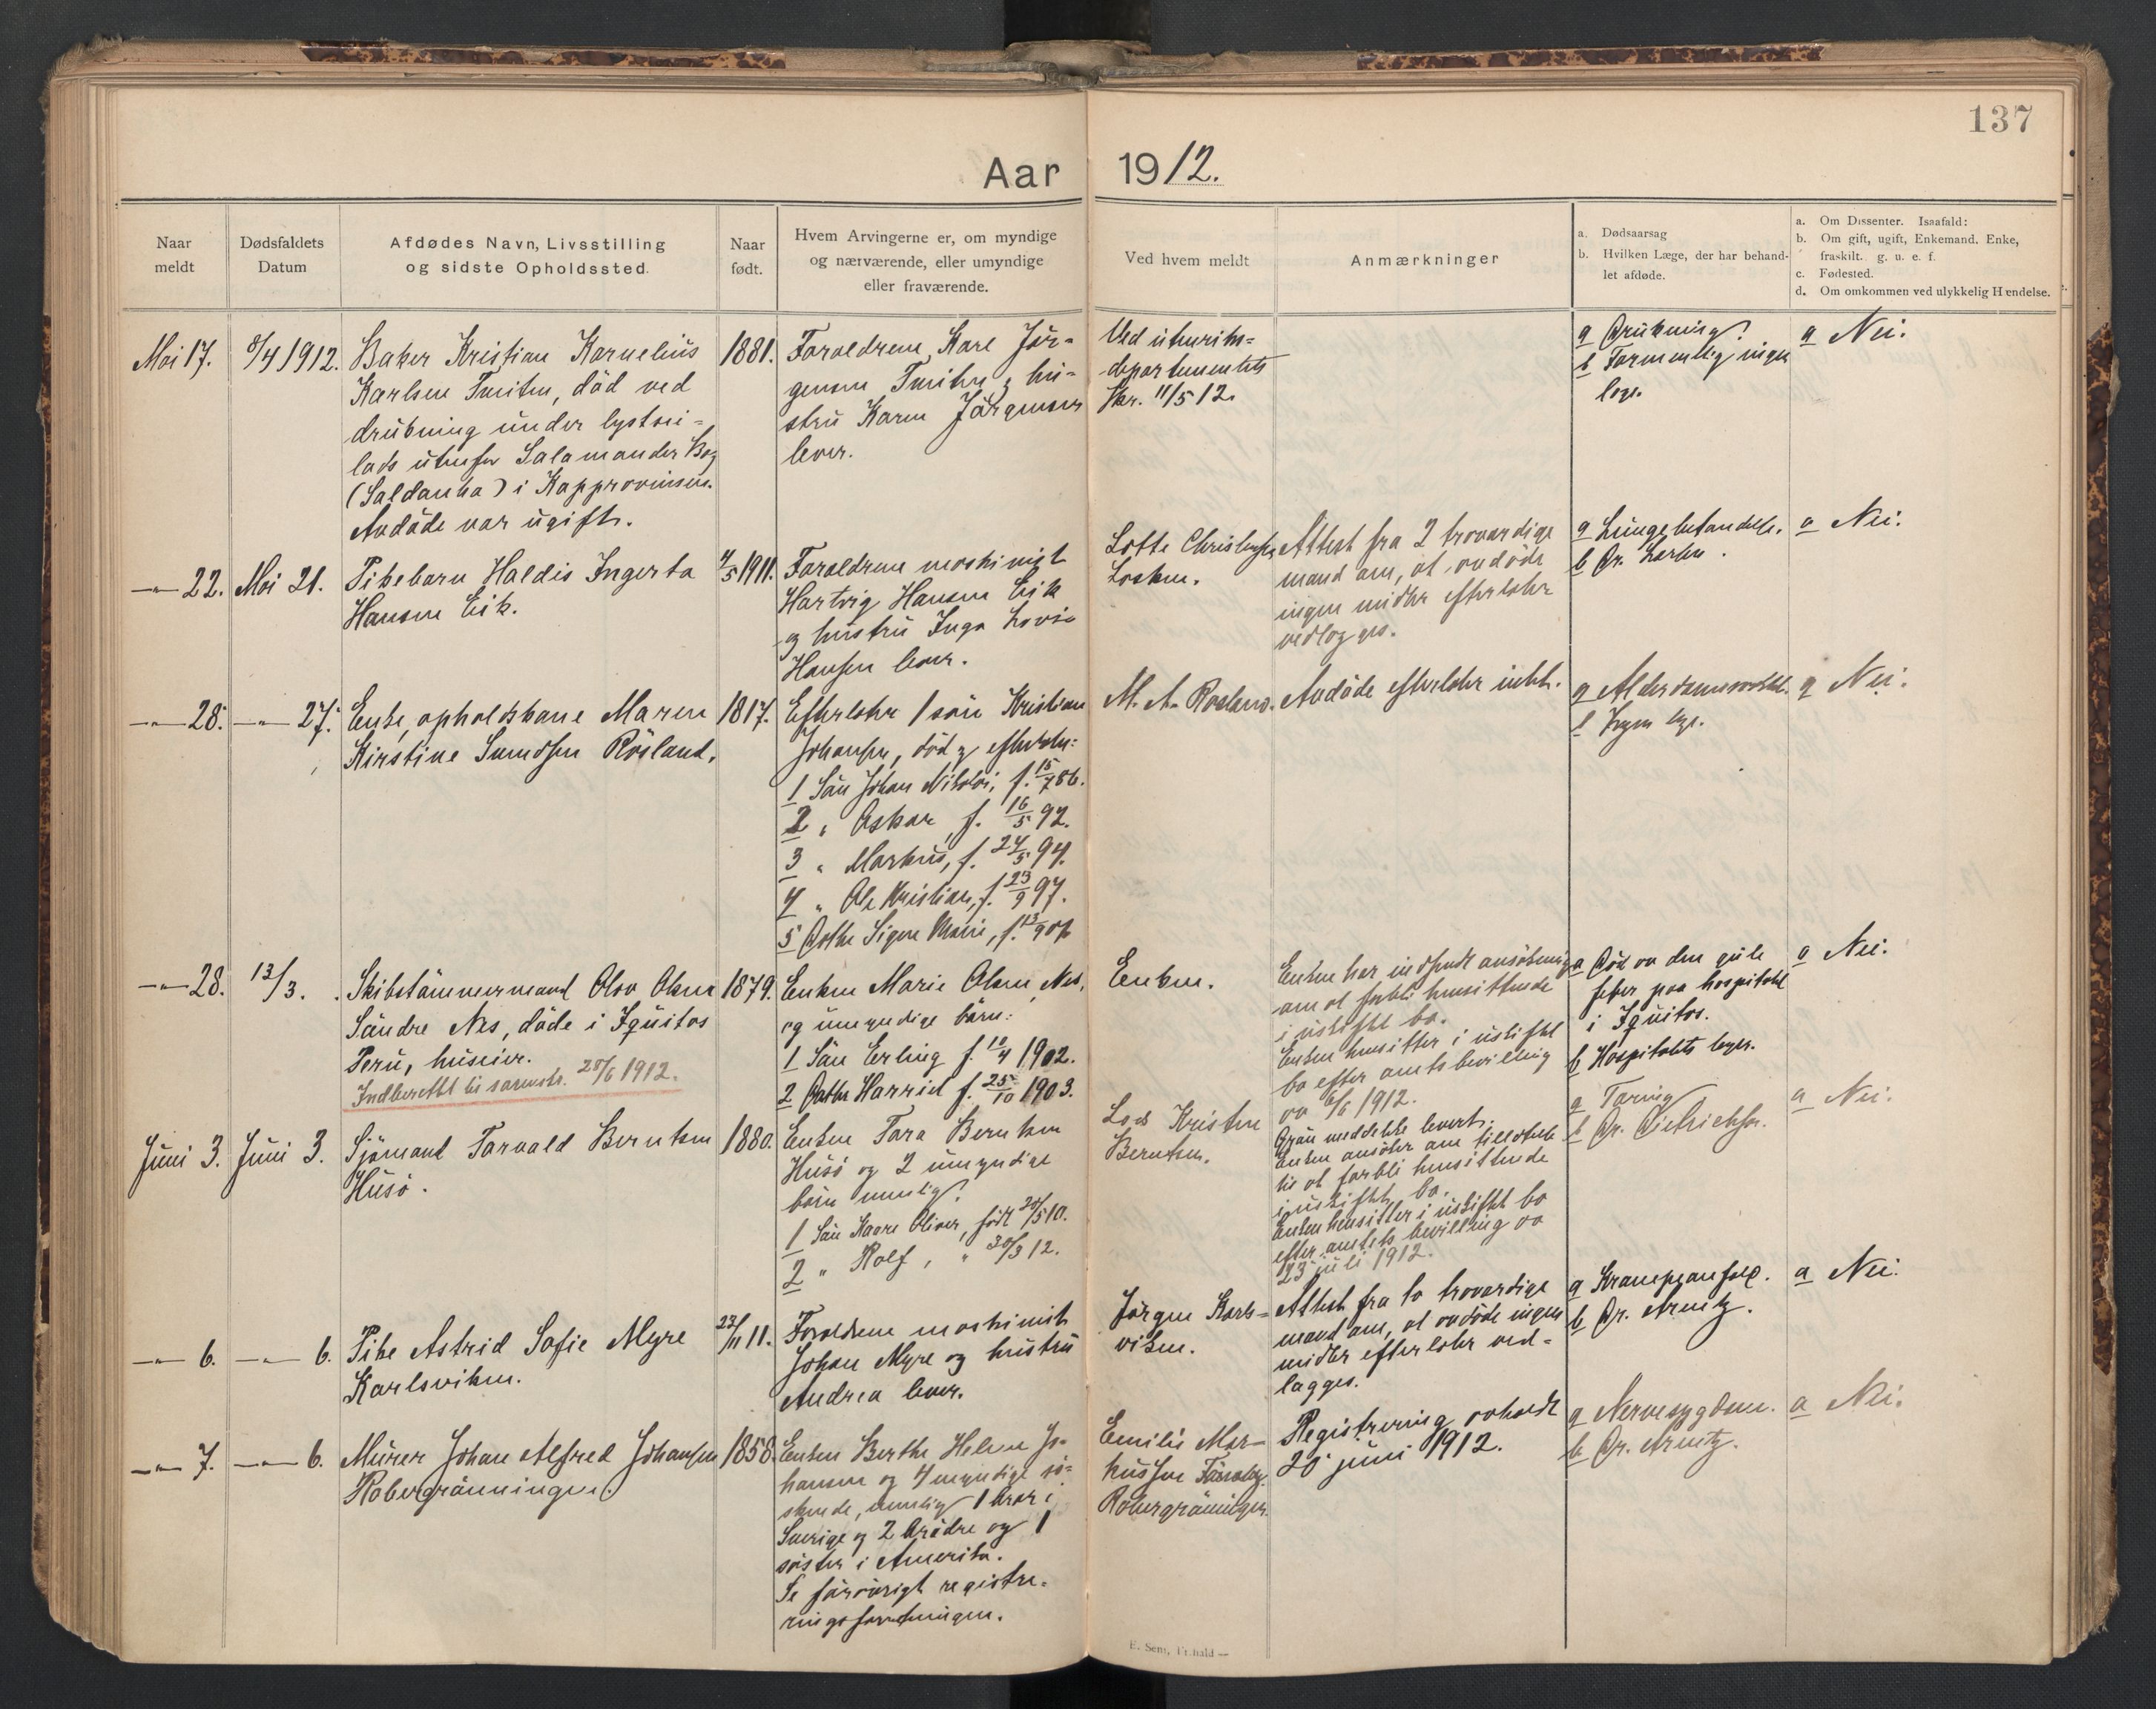 137
Aar 1912.
Naar meldt
Dødsfaldets Datum
Afdødes Navn, Livsstilling og sidste Opholdssted.
Naar født.
Hvem Arvingerne er, om myndige og nærværende, eller umyndige eller fraværende.
Ved hvem meldt
Anmærkninger
a. Dødsaarsag
b. Hvilken Læge, der har behandlet afdøde.
a. Om Dissenter. Isaafald:
b. Om gift, ugift, Enkemand. Enke, fraskilt. g. u. e. f.
c. Fødested.
d. Om omkommen ved ulykkelig Hændelse.
Mai 17. 8/4 1912. Baker Kristian Kornelius
Karlsen Tveiten, död ved
drukning under lystsei-
lads utenfor Salamander Bay
(Saldanha) i Kapprovinsen.
Avdöde var ugift.
1881.
Forældrene Karl Jör-
gensen Tveiten og hu-
stru Karen Jörgensen
lever.
Ved utenriks-
departementets
skr. 11/5 12.
a Drukning.
b Formentlig ingen
læge.
a Nei.
-"- 22. Mai 21. Pikebarn Haldis Ingerta
Hansen Eik.
4/5 1911.
Forældrene maskinist
Hartvig Hansen Eik
og hustru Inga Lovise
Hansen lever.
Lotte Christensen
Attest fra 2 troværdige
mænd om, at avdöde
ingen midler efterlater
vedlægges.
a Lungebetændelse.
b Dr. Larsen.
a Nei.
-"- 28. -"- 27. Enke, opholdskone Maren
Kirstine Svendsen Rösland.
1817.
Efterlater 1 sön Kristian
Johansen, död og efterlater:
1 Sön Johan Nikolai, f. 15/7 86.
2 " Oskar, f. 16/5 92.
3 " Markus, f. 24/5 94.
4 " Ole Kristian, f. 23/9 97.
5 Datter Signe Marie, f. 13/9 07
M. A. Rosland.
Avdöde efterlater intet.
a Alderdomssvakhet.
b Ingen læge.
a Nei.
-"- 28. 13/3. Skibstömmermand Olav Olsen
Söndre Nes, döde i Iquitos
Peru, huseier.
Indberettet til sorenskr. 28/6 1912.
1879.
Enken Marie Olsen Nes,
og umyndige börn:
1 Sön Erling f. 10/4 1902.
2 Datter Harriet f. 25/10 1903.
Enken.
Enken har indsendt ansökning
om at forbli hensittende
i uskiftet bo.
Enken hensitter i uskiftet
bo efter amtsbevilling
av 6/6 1912.
a Död av den gule
feber paa hospitalet
i Iquitos.
b Hospitalets læger.
a Nei.
Juni 3. Juni 3. Sjömand Torvald Berntsen
Husö.
1880.
Enken Tora Berntsen
Husö og 2 umyndige
börn nemlig:
1 Sön Kaare Oliver, födt 20/5 10.
2 " Rolf, " 30/3 12.
Lods Kristen
Berntsen.
Enken ansöker om tilladelse
til at forbli hensittende
i uskiftet bo.
Enken hensitter i uskiftet bo
efter amtets bevilling av
23 juli 1912.
a Tæring
b Dr. Dietrichson.
a Nei.
-"- 6. -"- 6. Pike Astrid Sofie Myre
Karlsviken.
23/11 11.
Forældrene maskinist
Johan Myre og hustru
Andrea lever.
Jörgen Karls-
viken.
Attest fra to troværdige
mænd om, at avdöde ingen
midler efterlater ved-
lægges.
a Krampeanfald.
b Dr. Arentz.
a Nei.
-"- 7. -"- 6. Murer Johan Alfred Johansen
Robergrönningen.
1858.
Enken Berthe Helene Jo-
hansen og 4 myndige sö-
skende, nemlig 1 bror i
Sverige og 2 brödre og 1
söster i Amerika.
Se forövrigt registre-
ringsforretningen.
Emilie Mar-
kussen
Robergrönningen.
Registrering avholdt
20 juni 1912.
a Nervesygdom.
b Dr. Arentz.
a Nei.